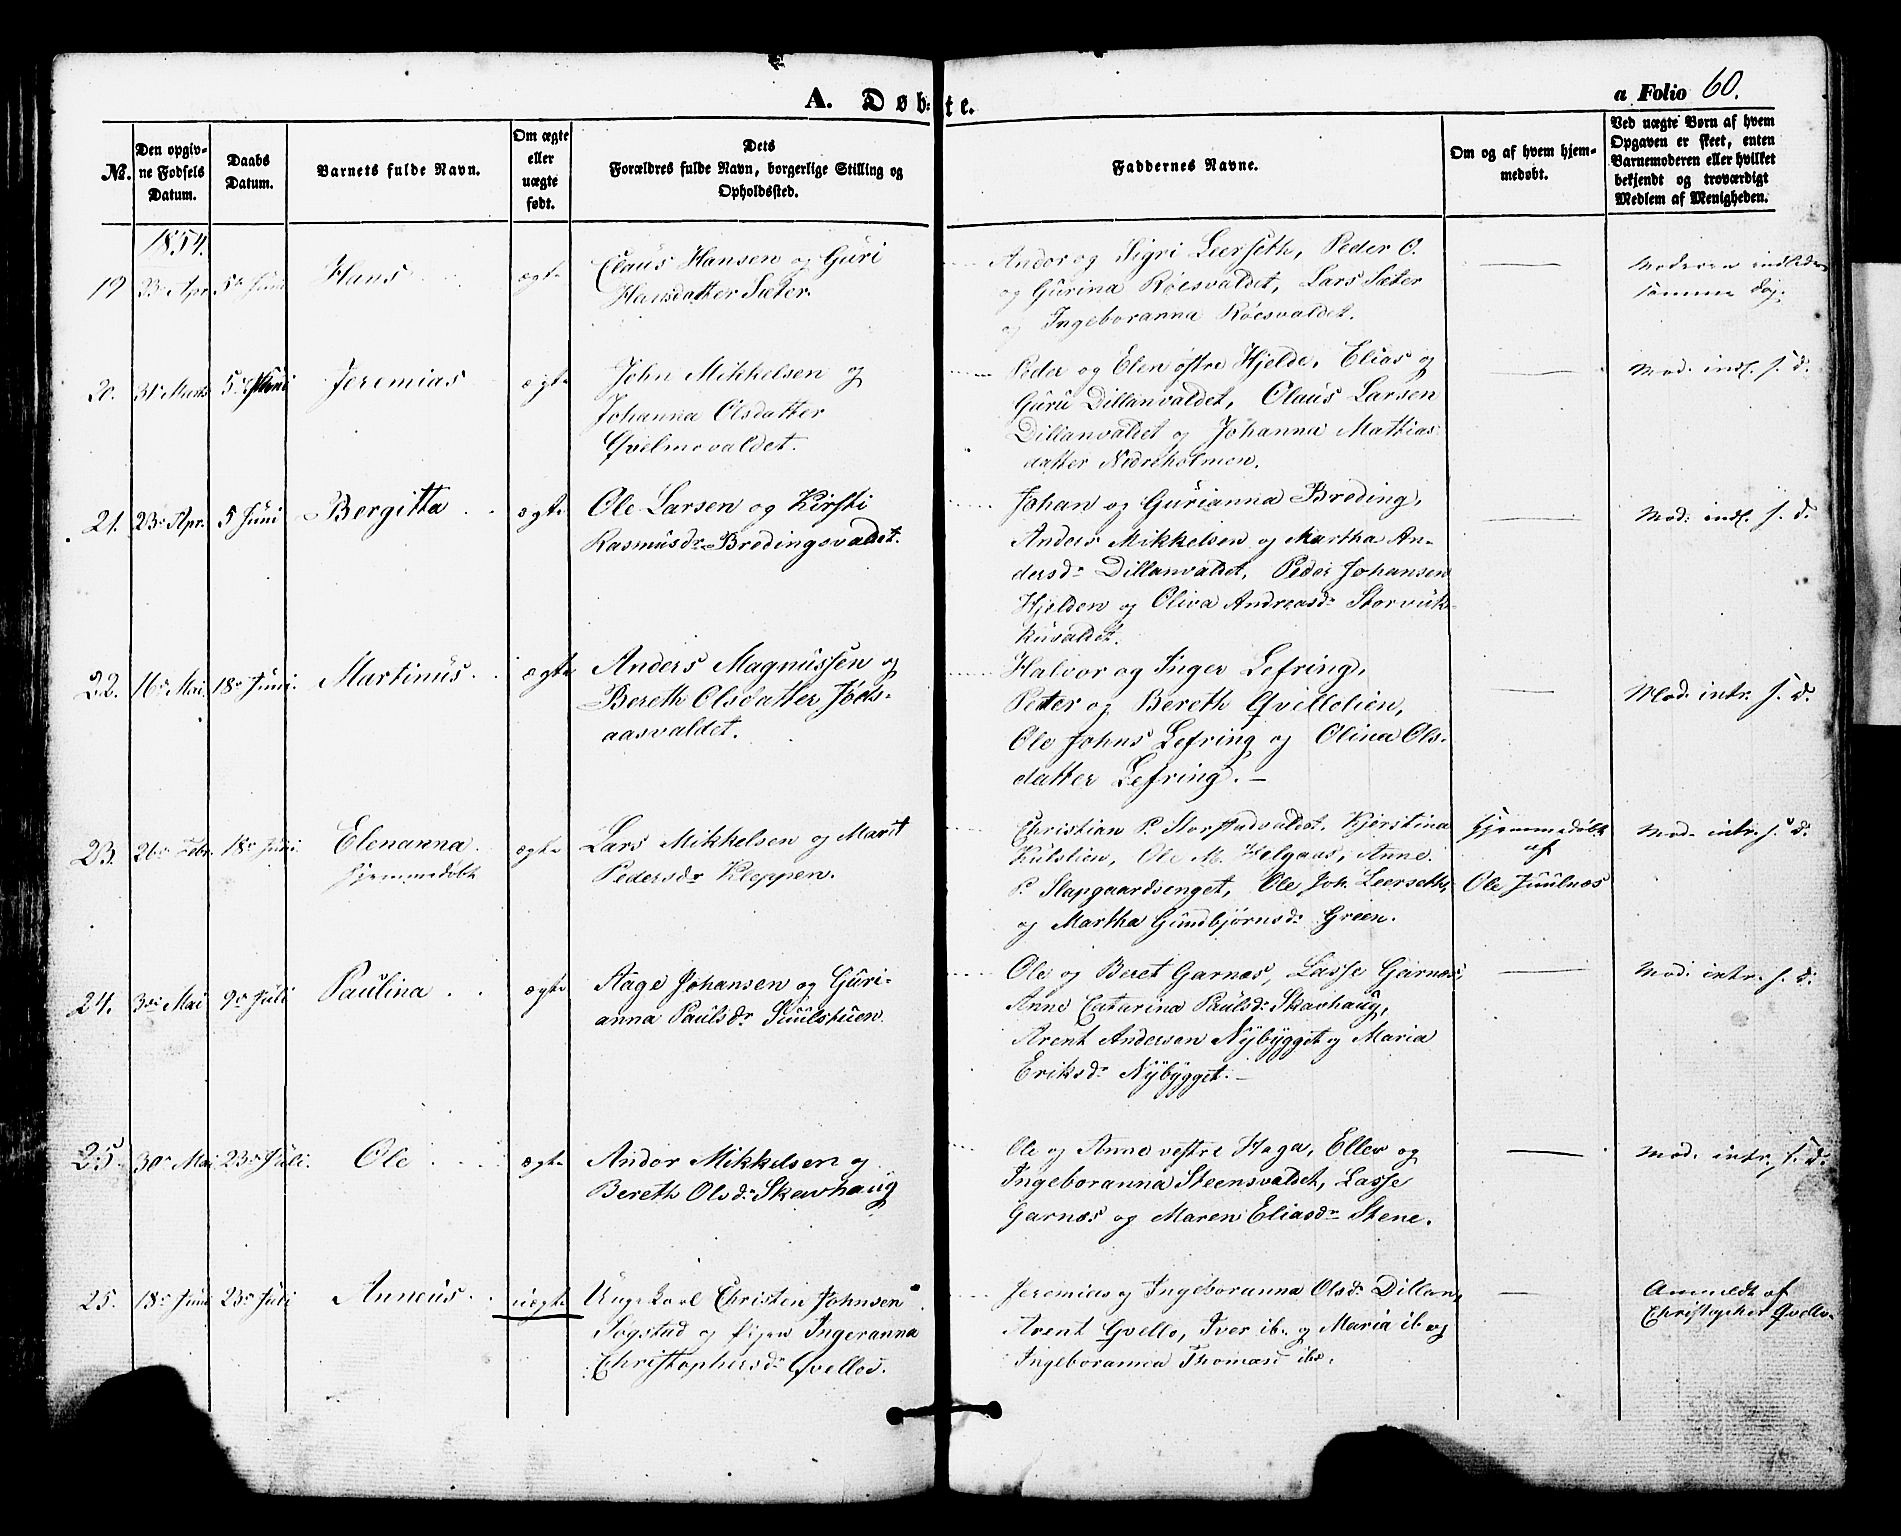 A. Døb-te.
a Folio 60.
No.
Den opgiv-
ne Fødsels
Datum.
Daabs
Datum.
Barnets fulde Navn.
Om ægte
eller
uægte
født.
Dets
Forældres fulde Navn, borgerlige Stilling og
Opholdssted.
Faddernes Navne.
Om og af hvem hjem-
medøbt.
Ved uægte Børn af hvem
Opgaven er skeet, enten
Barnemoderen eller hvilket
bekjendt og troværdigt
Medlem af Menigheden.
1854.
19 23 Apr 5 Juni Hans ægte
Claus Hansen og Guri
Hansdatter Sæter.
Andor og Sigri Leerseth, Peder O.
og Gurina Röesvaldet, Lars Sæter
og Ingeboranna Röesvaldet.
Moderen indleder
samme Dag.
20. 31 Marts 5 Juni Jeremias ægte
John Mikkelsen og
Johanna Olsdatter
Qvelmovaldet.
Peder og Elen østre Hjelde, Elias og
Guru Dillanvaldet, Claus Larsen
Dillanvaldet og Johanna Mathias-
datter Nedreholmen.
Mod. indl. s. d.
21. 23 Apr. 5 Juni Bergitta ægte
Ole Larsen og Kirsti
Rasmusdr. Bredingsvaldet.
Johan og Gurianna Breding,
Anders Mikkelsen og Martha An-
dersdr. Dillanvaldet, Peder Johansen
Hjelden og Oliva Andreasdr. Storvuk-
kuvaldet.
Mod. indl. s. d.
22. 16 Mai 18 Juni. Martinus ægte
Anders Magnussen og
Bereth Olsdatter Jøds-
aasvaldet.
Halvor og Inger Lefring,
Peter og Bereth Qvillolien,
Ole Johns Lefring og Olina Ols-
datter Lefring. -
Mod. intr. s. d.
23. 26 Febr. 18 Juni. Elenanna. ægte
hjemmedøbt
Lars Mikkelsen og Marit
Pedersdr. Kloppen.
Christian P. Storstadvaldet, Kjerstina
Kulslien, Ole M. Helgaas, Anne
P. Slapgaardsenget, Ole Joh. Leerseth,
og Martha Gundbjørnsdr. Green.
Hjemmedøbt
af
Ole Juulnæs
Mod. intr. s. d.
24. 3 Mai 9 Juli Paulina ægte
Aage Johansen og Guri-
anna Paulsdr. Suulstuen.
Ole og Beret Garnæs, Lasse Garnæs,
Anne Catarina Paulsdr. Skavhaug,
Arent Andersen Nÿbÿgget og Maria
Eriksdr. Nÿbÿgget. -
Mod. intr. s. d.
25. 30 Mai 23 Juli. Ole ægte
Andor Mikkelsen og
Bereth Olsdr. Skavhaug
Ole og Anne vestre Haga, Ellev og
Ingeboranna Steensvaldet, Lasse
Garnæs og Maren Eliasdr. Stene.
Mod. intr. s. d.
25. 18 Juni 23 Juli Anneus uægte
Ungekarl Christen Johnsen
Togstad og Pigen Ingeranna
Christophersdr. Qvello.
Jeremias og Ingeboranna Olsdr. Dillan,
Arent Qvello, Iver ib. og Maria ib. og
Ingeboranna Thomasd ib.
Anmeldt af
Christopher Qvello.